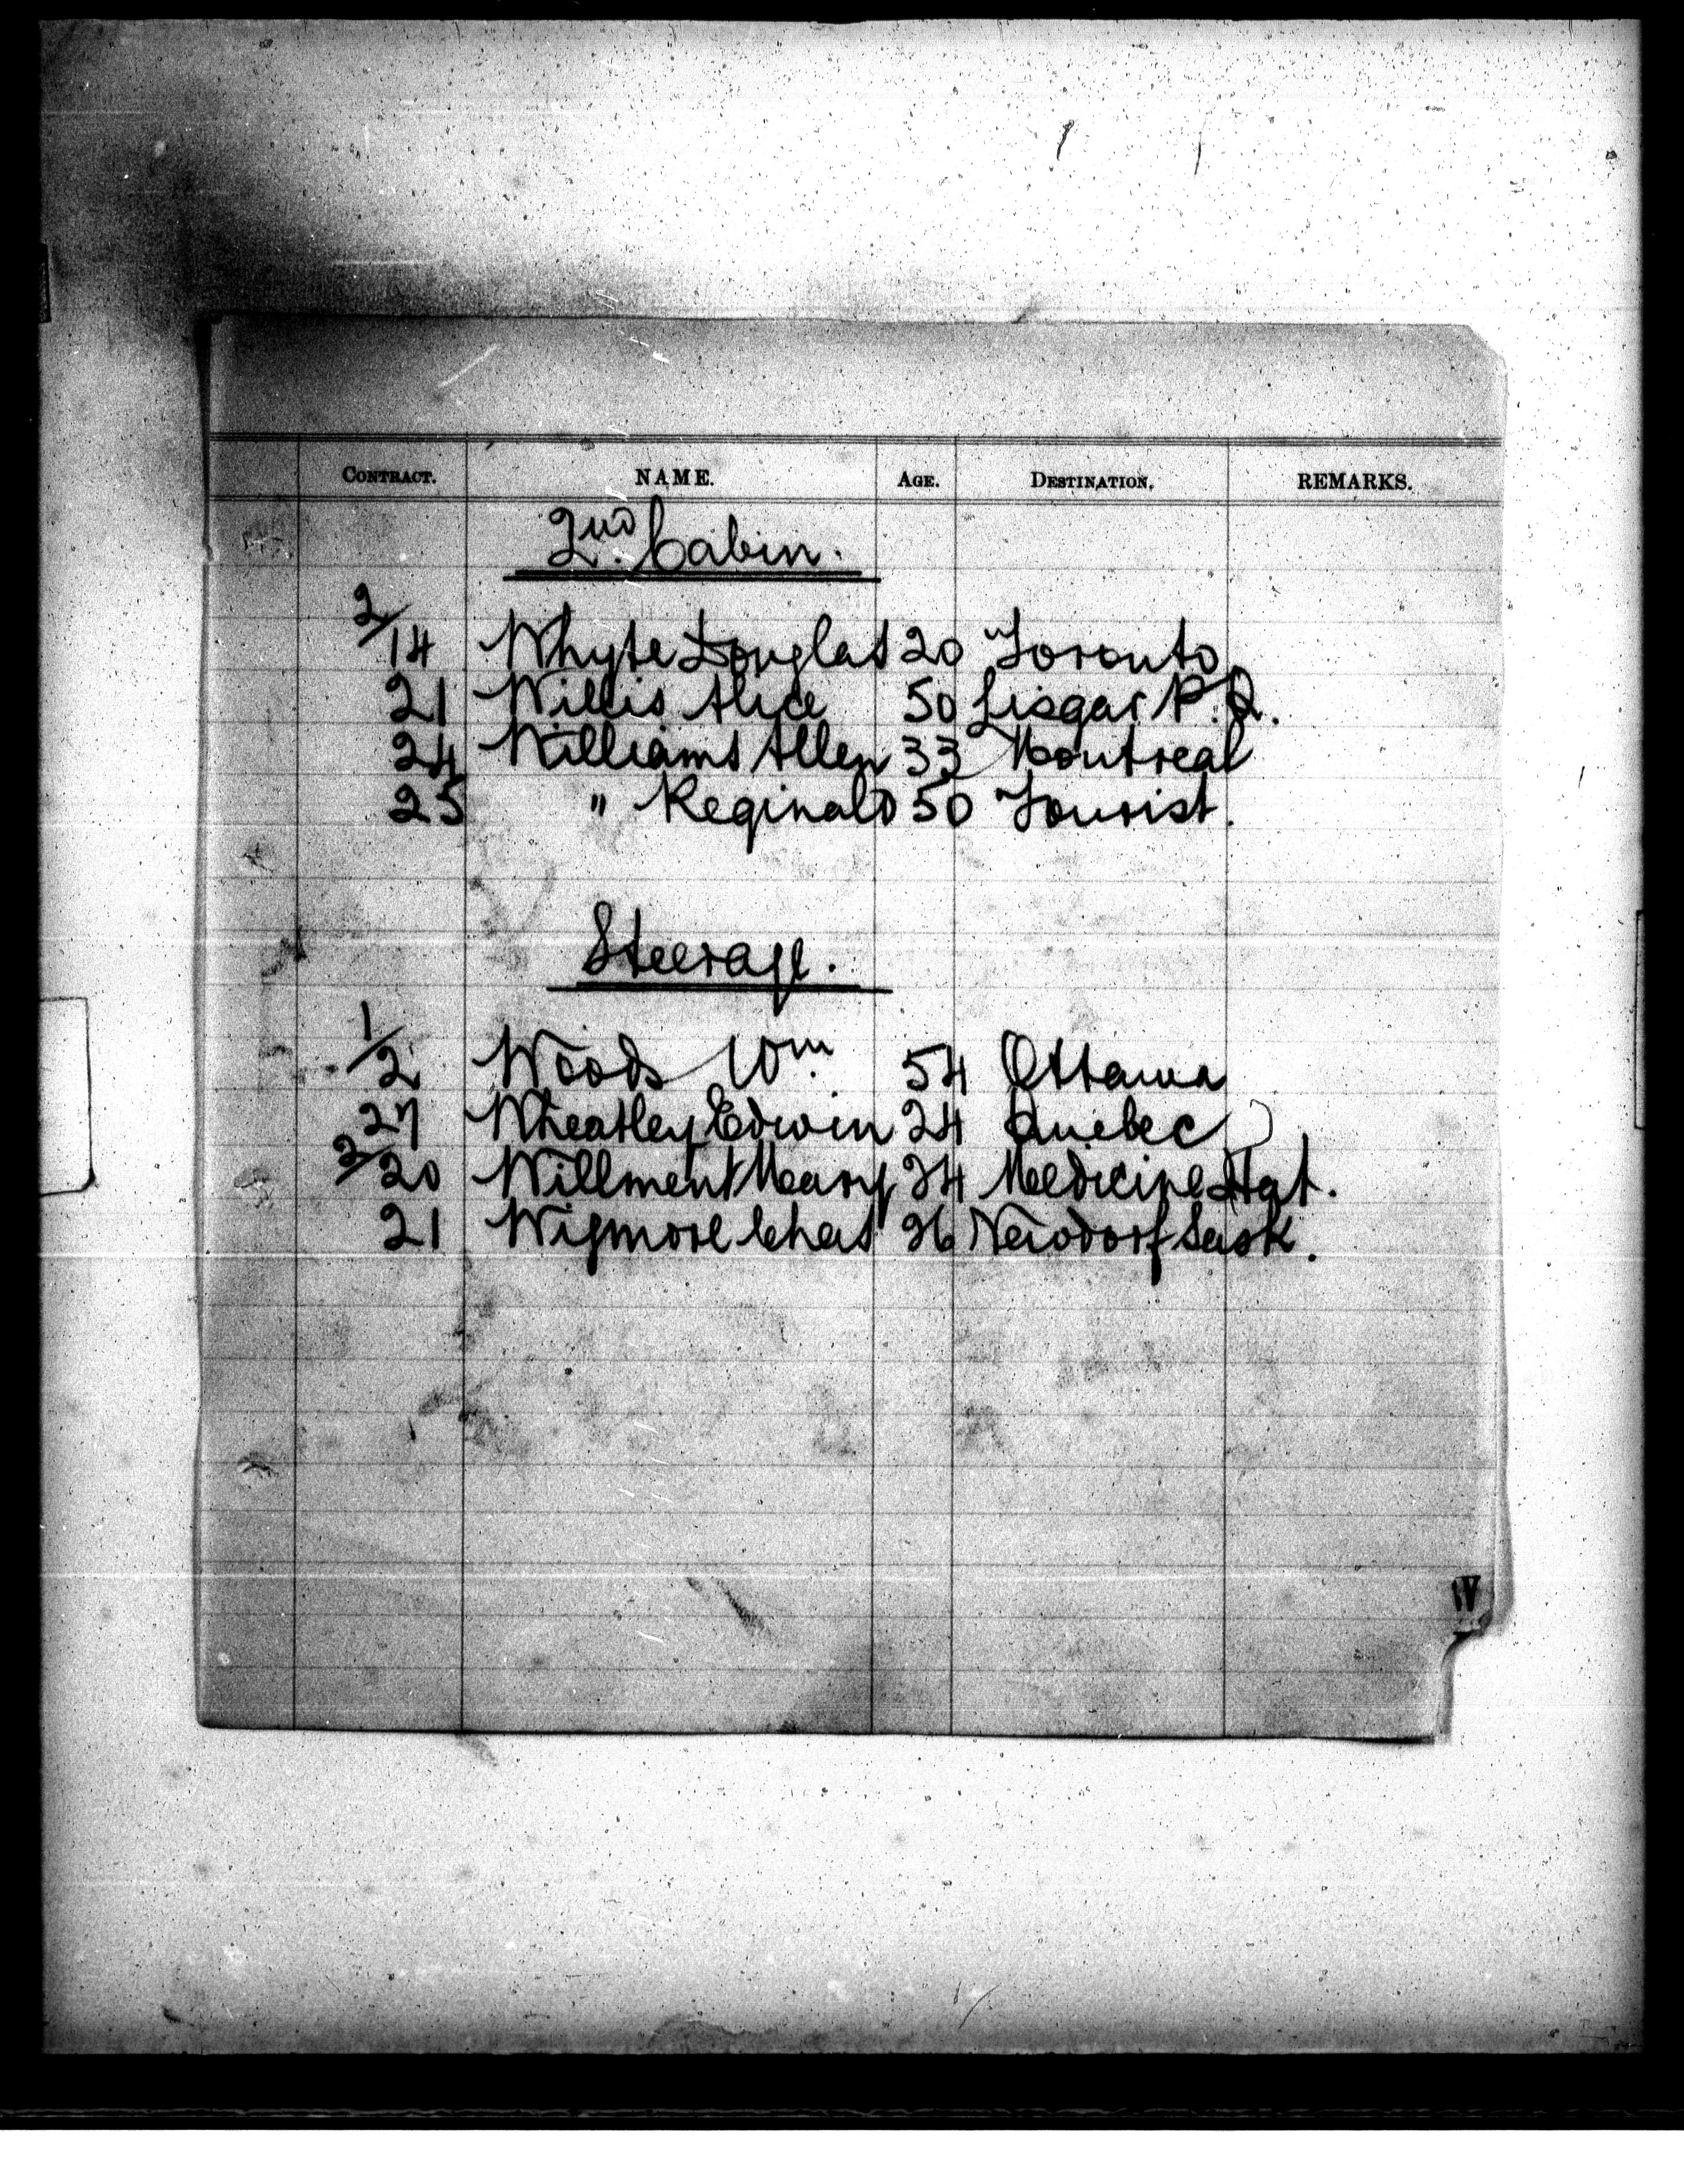 CONTRACT. NAME. AGE. DESTINATION. REMARKS.
2nd Cabin.
2/14 Whyte Douglas 20 Toronto
21 Willis Alice 50 Lisgar P.Q.
24 Williams Allen 33 Montreal
25 " Reginald 50 Tourist.
Steerage.
1/2 Woods Wm 54 Ottawa
27 Wheatley Edwin 24 Quebec
2/20 Willment Mary 34 Medicine Hat.
21 Wigmore Chas 26 Neudorf Sask.
W